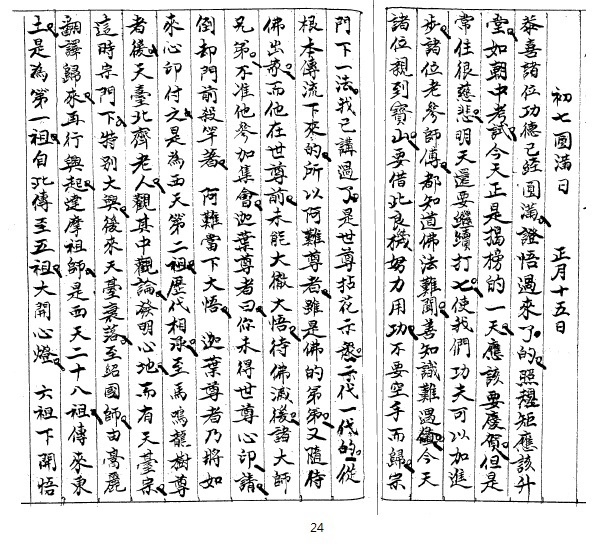 初七圓滿日　正月十五日
恭喜諸位功德已經圓滿。證悟過來了的。照規矩應該升
堂。如朝中考試。今天正是揭榜的一天。應該要慶賀。但是
常住很慈悲。明天還要繼續打七。使我們功夫可以加進
步。諸位老參師傅。都知道佛法難聞。善知識難遇。今天
諸位親到寶山。要借此良機。努力用功。不要空手而歸。宗
門下一法。我已講過了。是世尊拈花示眾。一代一代的。從
根本傳流下來的。所以阿難尊者。雖是佛的弟弟。又隨侍
佛出家。而他在世尊前。未能大徹大悟。待佛滅後。諸大師
兄弟。不准他參加集會。迦葉尊者曰。你未得世尊心印。請
倒却門前剎竿著。阿難當下大悟。迦葉尊者乃將如
來心印付之。是為西天第二祖。歷代相承。至馬鳴龍樹尊
者後。天臺北齊老人。觀其中觀論。發明心地。而有天臺宗。
這時宗門下。特別大興。後來天臺衰落。至韶國師。由高麗
翻譯歸來。再行興起。達摩祖師。是西天二十八祖。傳來東
土。是為第一祖。自此傳至五祖。大開心燈。六祖下開悟
24